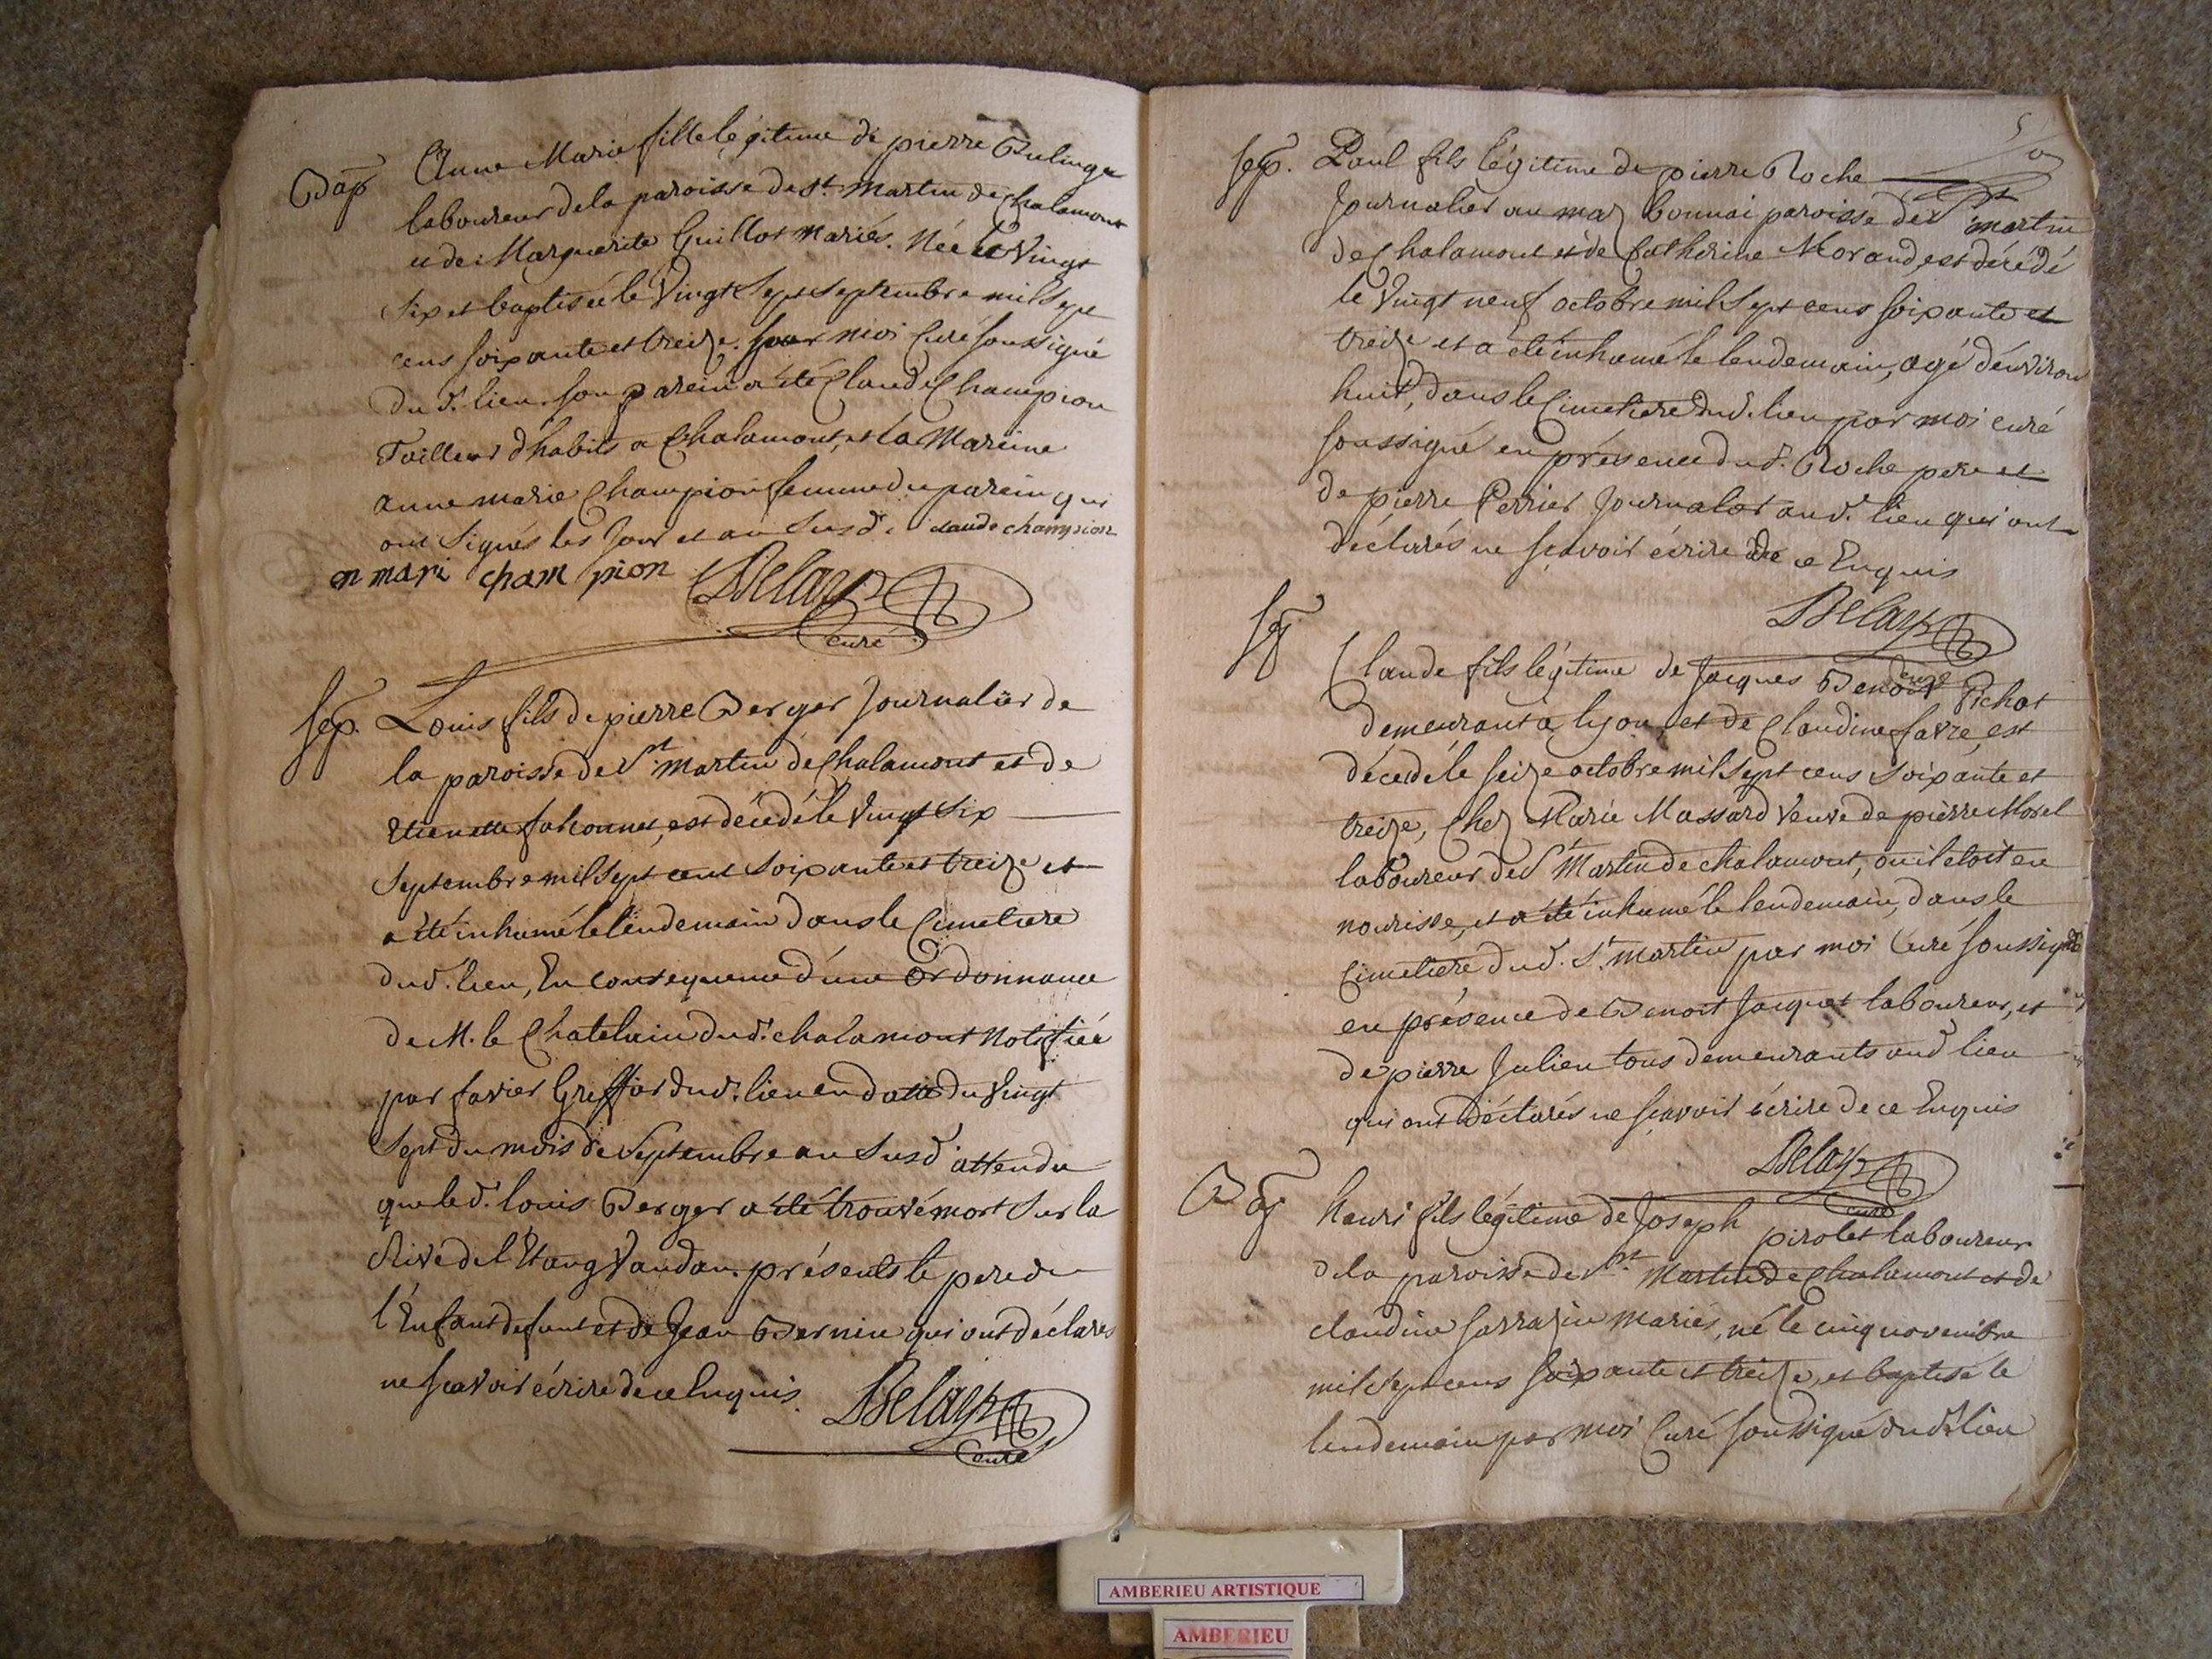 Bap
Anne Marie fille légitime de pierre
laboureur de la paroisse de St. Martin de Chalamont
et de Marguerite Guillot mariés. Née le Vingt
six et baptisée le Vingt Sept Septembre mil sept
cens soixante et treize. par moi Curé soussigné
du d. lieu. son parein a été Claude Champion
Tailleur d'habits a Chalamont, et la Mareine
anne marie Champion femme du parein qui
ont signés les Jour et an Susd. claude champion
an mari cham pion Delaye
curé
Sep. Louis fils de pierre Berger Journalier de
la paroisse de St. martin de Chalamont et de
Etienette, est décédé le Vingt Six
Septembre mil sept cent soixante et treize et
a été inhumé le lendemain dans le Cimetiere
dud. lieu, En consequence d'une Ordonnance
de M. le Chatelain dud. chalamont Notifiée
par favier Greffier dud. lieu en datte du Vingt
Sept du mois de Septembre an Susd. attendu
que led. louis Berger a été trouvé mort sur la
Rive de l'Etang Vaudan. présents le pere de
l'Enfant defunt et de Jean Bernin qui ont déclarés
ne scavoir écrire de ce Enquis. Delaye
curé
5
Sep. Paul fils légitime de pierre Roche
Journalier au maz bonnai paroisse de St martin
de Chalamont et de Catherine Morand, est décédé
le Vingt neuf octobre mil Sept cens soixante et
treize et a été inhumé le lendemain, agé d'environ
huit, dans le Cimetiere dud. lieu par moi curé
soussigné en présence dud. Roche pere et
de pierre Perrier Journalier aud. lieu qui ont
déclarés ne sçavoir écrire de ce Enquis
Delaye
curé
Sep
Claude fils légitime de Jacques Benoit Pichat
demeurant a lyon, et de Claudine favre, est
décedé le seize octobre mil Sept cens soixante et
treize, Chez Marie Massard Veuve de pierre Morel
laboureur de St Martin de chalamont, ou il etoit en
nourisse, et a été inhumé le lendemain, dans le
Cimetiere dud. St. martin par moi Curé soussigné
en présence de Benoit Jacquet laboureur, et
de pierre Julien tous demeurants aud lieu
qui ont déclarés ne sçavoir écrire de ce Enquis
Delaye
curé
Bap
henri fils légitime de Joseph pirolet laboureur
de la paroisse de St. Martin de Chalamont et de
claudine sarrazin mariés, né le cinq novembre
mil Sept cens soixante et treize, et baptisé le
lendemain par moi Curé soussigné dud. lieu
AMBERIEU ARTISTIQUE
AMBERIEU